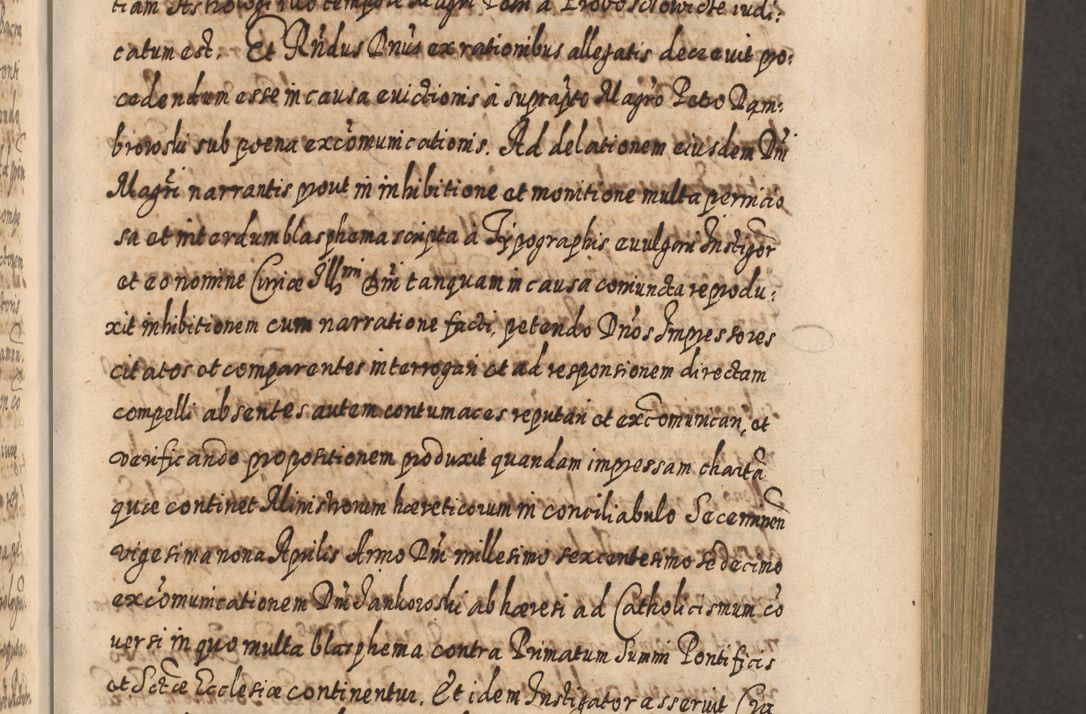 tiam Astrologi pro tempore Magri Petri a iudi:
catum est. Et Rndus Dnus ex rationibus allegatis decrevit pro:
cedendum esse in causa evictionis à suprapto Magro Petro Dam:
browski sub poena excomunicationis. Ad delationem eiusdem Dni
Magri narrantis prout in inhibitione et monitione multa pernicio
sa et interdum blasphema scripta à Typographis evulgari Instigator
et eo nomine Curiae Illmi Dni tanquam in causa coniuncta reprodu:
xit inhibitionem cum narratione facti, petendo Dnos Impressores
citatos et comparentes interrogari et ad responsionem directam
compelli absentes autem contumaces reputari et excomunicari, et
verificando propositionem produxit quandam impressam charta
quae continet Ministrorum haereticorum in conciliabulo Secemnen
vigesima nona Aprilis Anno Dni millesimo sexcentesimo sedecimo
excomunicationem Dni Jankowski ab haeresi ad Catholicismum co
versi in quo multa blasphema contra Primatum Summi Pontificis
et Sctae Ecclesiae continentur. Et idem Instigator asseruit